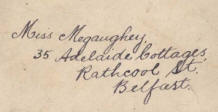 Miss Megaughey,
35 Adelaide Cottages,
Rathcool St.
Belfast.